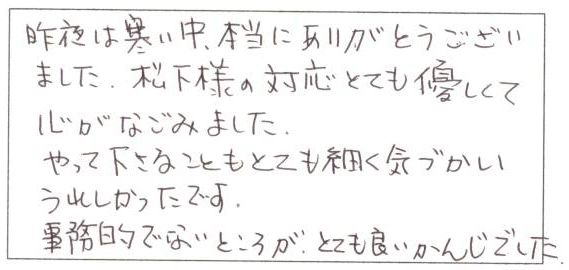 昨夜は寒い中、本当にありがとうござい
ました。松下様の対応とても優しくて
心がなごみました。
やって下さることもとても細く気づかい
うれしかったです。
事務的でないところが、とても良いかんじでした。